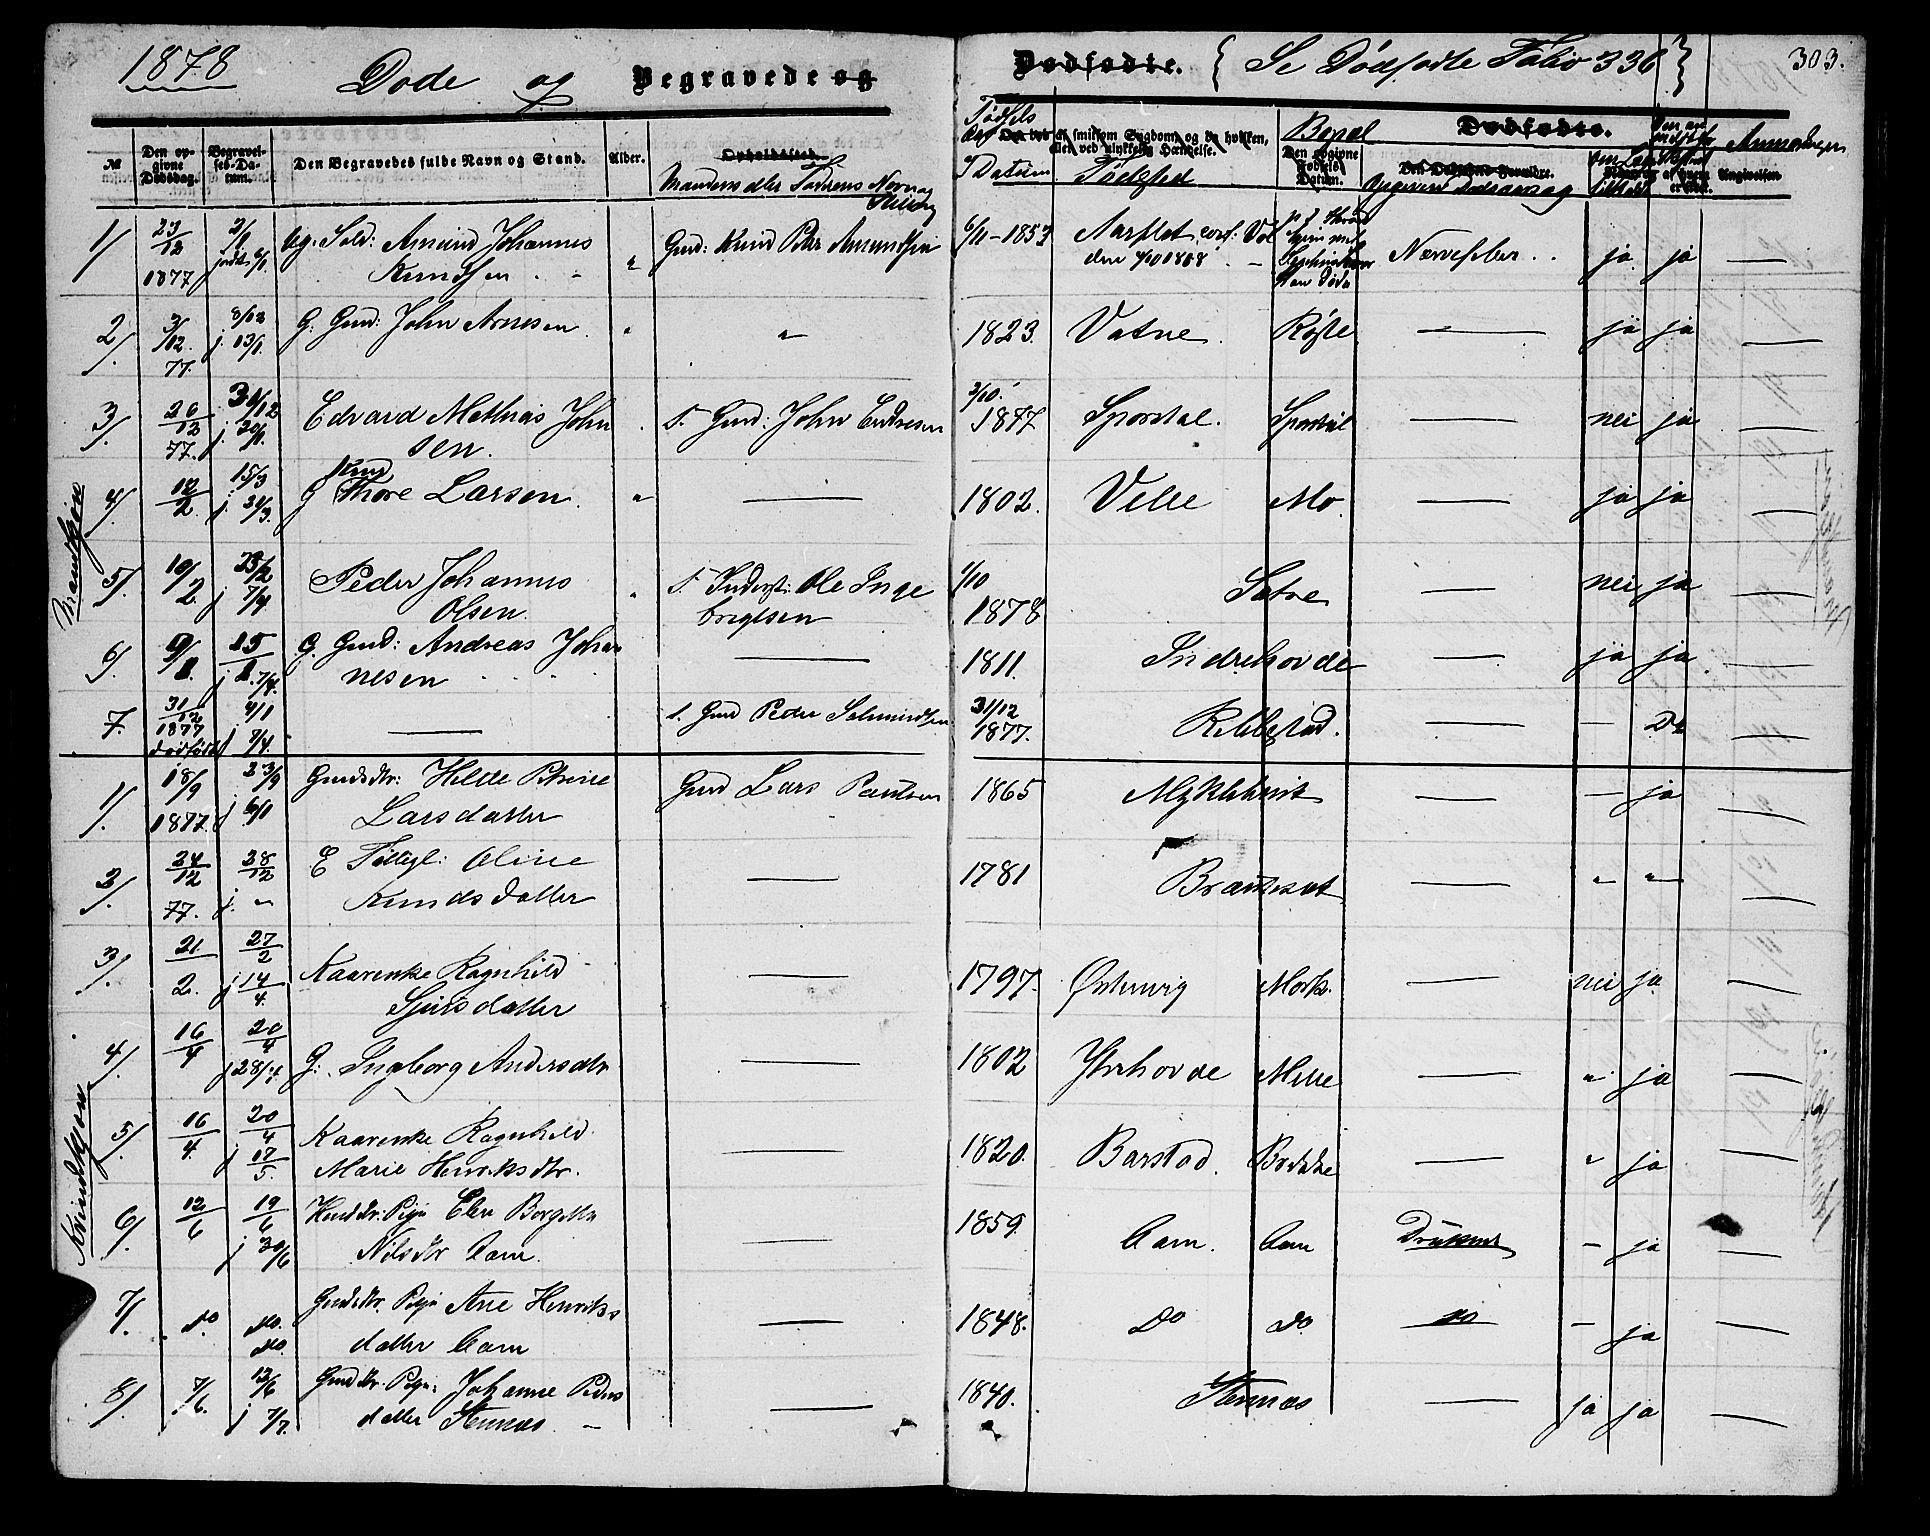 1878
Døde og Begravede og Dødfødte. { Se Dødfødte Folio 336 } 303.
№ Den opgivne Dødsdag. Begravelses-Datum. Den Begravedes fulde Navn og Stand. Alder. Opholdssted.
Mandens eller Faderens Navn og Stilling
Fødsels Datum Fødested Bopæl
Den opgivne Fødsels Datum. Dødfødte. Angivelsen
Mandkjøn
1/ 23/12 1877 2/1 jordk 6/1 Ug. Sold: Amund Johannes Knudsen " Gmd: Knud Peter Amundsen 6/11-1853 Aarflot Nervefeber ja ja —
2/. 3/12. 77. 8/12 j 13/1. G: Gmd: John Arnesen " " 1823. Vatne. Røjte — ja ja —
3/. 26/12 77. 31/12 j 20/1. Edvard Mathias Johnsen. S. Gmd: John Endresen 3/10. 1877 Sporstøl. Sporstøl — nei ja —
4/ 12/2 15/3 j 24/3. G Knud Thore Larsen. " — 1802. Velle Mo. — ja ja —
5/. 10/2. 23/2 j 7/4 Peder Johannes Olsen. " S. Inderst: Ole Ingebrigtsen 1/10 1878 Sætre — nei ja —
6/. 9/1. 15/1 j 7/4. G. Gmd: Andreas Johannesen — 1811. Indrehovde — ja ja.
7. 31/12 1877 dødfødt 4/1 j 7/4. — S. Gmd Peder Salmundsen 31/12 1877. Rebbestad. — — Do —
Kvindekjøn
1/. 18/9 1877. 23/9 j 6/1 Gmdsdtr: Hilde Petrine Larsdatter Gmd Lars Paulsen 1865 Myklebust — — ja —
2/. 24/12 77. 28/12 j. " E Fattigl: Oline Knudsdatter — 1781 Brauteset — " " —
3/. 21/2. 27/2 j 14/4. Kaarenke Ragnhild Sjursdatter — 1797. Østenvig Mork. — nei ja —
4/. 16/4 20/4 j 28/4. G: Ingeborg Andersdtr — 1802 Ytrehovde Melle — " ja —
5/. 16/4. 20/4 j 17/5. Kaarenke Ragnhild Marie Henriksdtr. — 1820. Barstad. — " ja —
6/. 12/6 19/6 j 30/6 Pige Elen Bergitta Nilsdtr Aam. — 1859. Aam. Aam Druknet — ja —
7/. do do. do. Gmdsdtr. Pige Ane Henriksdatter Aam — 1848. Do Do do — ja —
8/. 7/6. 12/6 j 7/7. Gmddtr. Pige: Johanne Pedersdatter Stennæs. — — 1840. Stennæs — ja ja —